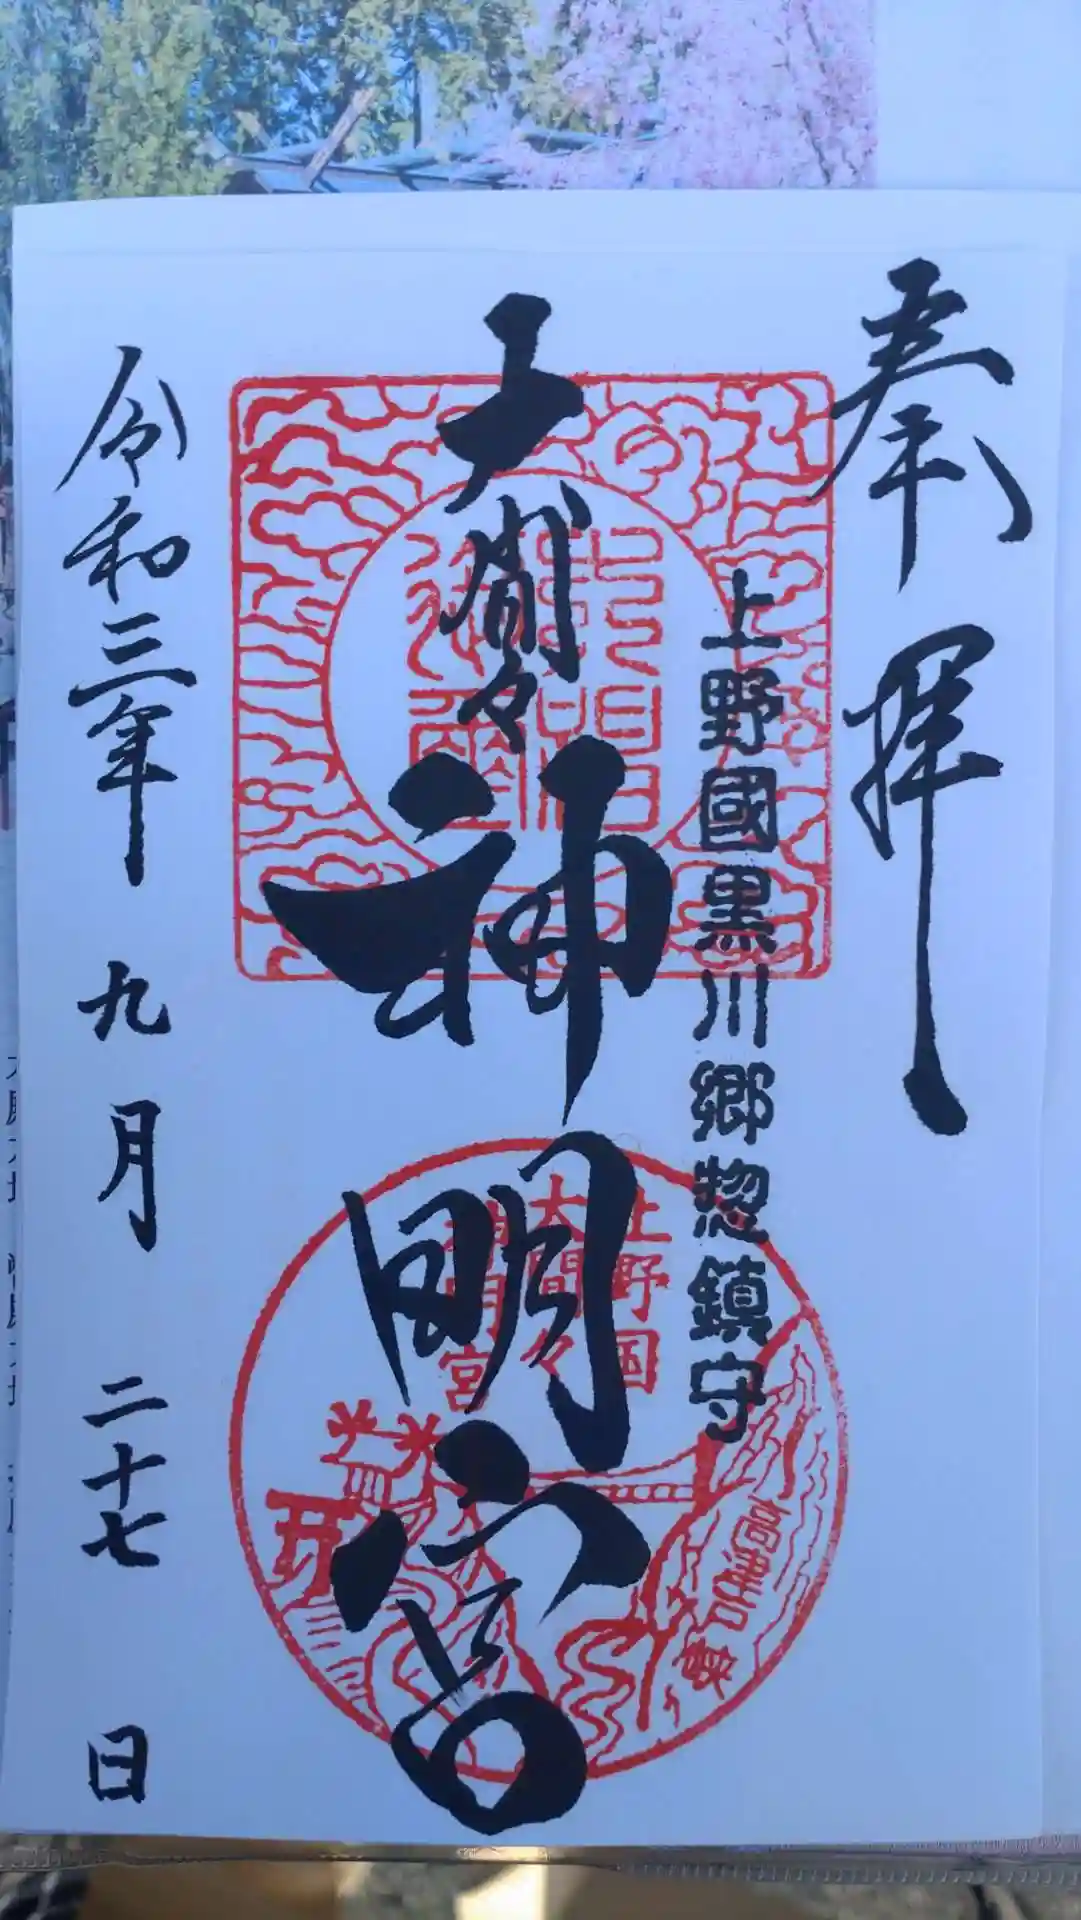 奉拝
上野國黒川郷惣鎮守
大間々神明宮
令和三年 九月 二十七日
上野国
大間々
神明宮
高津戸峡